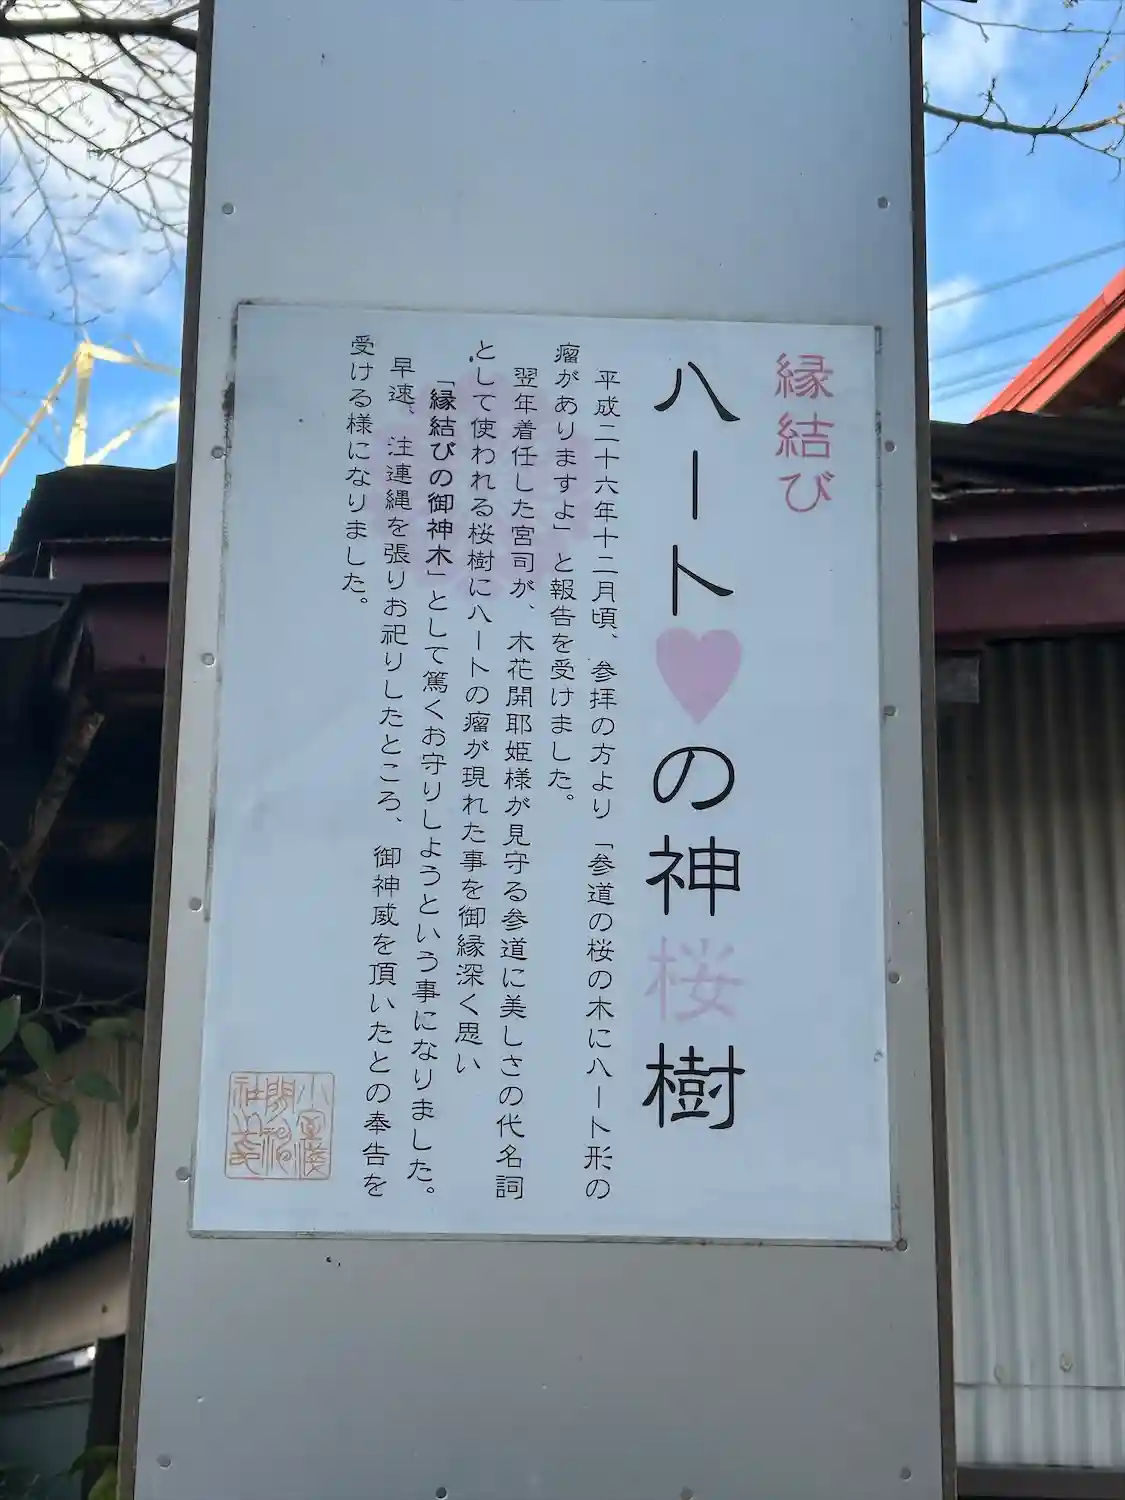 縁結び
ハート♥の神桜樹
平成二十六年十二月頃、参拝の方より「参道の桜の木にハート形の
瘤がありますよ」と報告を受けました。
翌年着任した宮司が、木花開耶姫様が見守る参道に美しさの代名詞
として使われる桜樹にハートの瘤が現れた事を御縁深く思い
「縁結びの御神木」として篤くお守りしようという事になりました。
早速、注連縄を張りお祀りしたところ、御神威を頂いたとの奉告を
受ける様になりました。
小室浅
間神
社